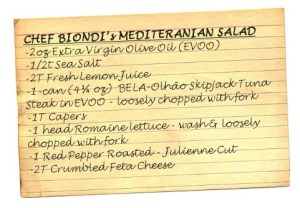 CHEF BIONDI's MEDITERANIAN SALAD
-2oz Extra Virgin Olive Oil (EVOO)
-1/2t Sea Salt
-2T Fresh Lemon Juice
-1-can (4¼ oz) BELA-Olhão Skipjack Tuna
Steak in EVOO - loosely chopped with fork
-1T Capers
-1 head Romaine lettuce - wash & loosely
chopped with fork
-1 Red Pepper Roasted - Julienne Cut
-2T Crumbled Feta Cheese